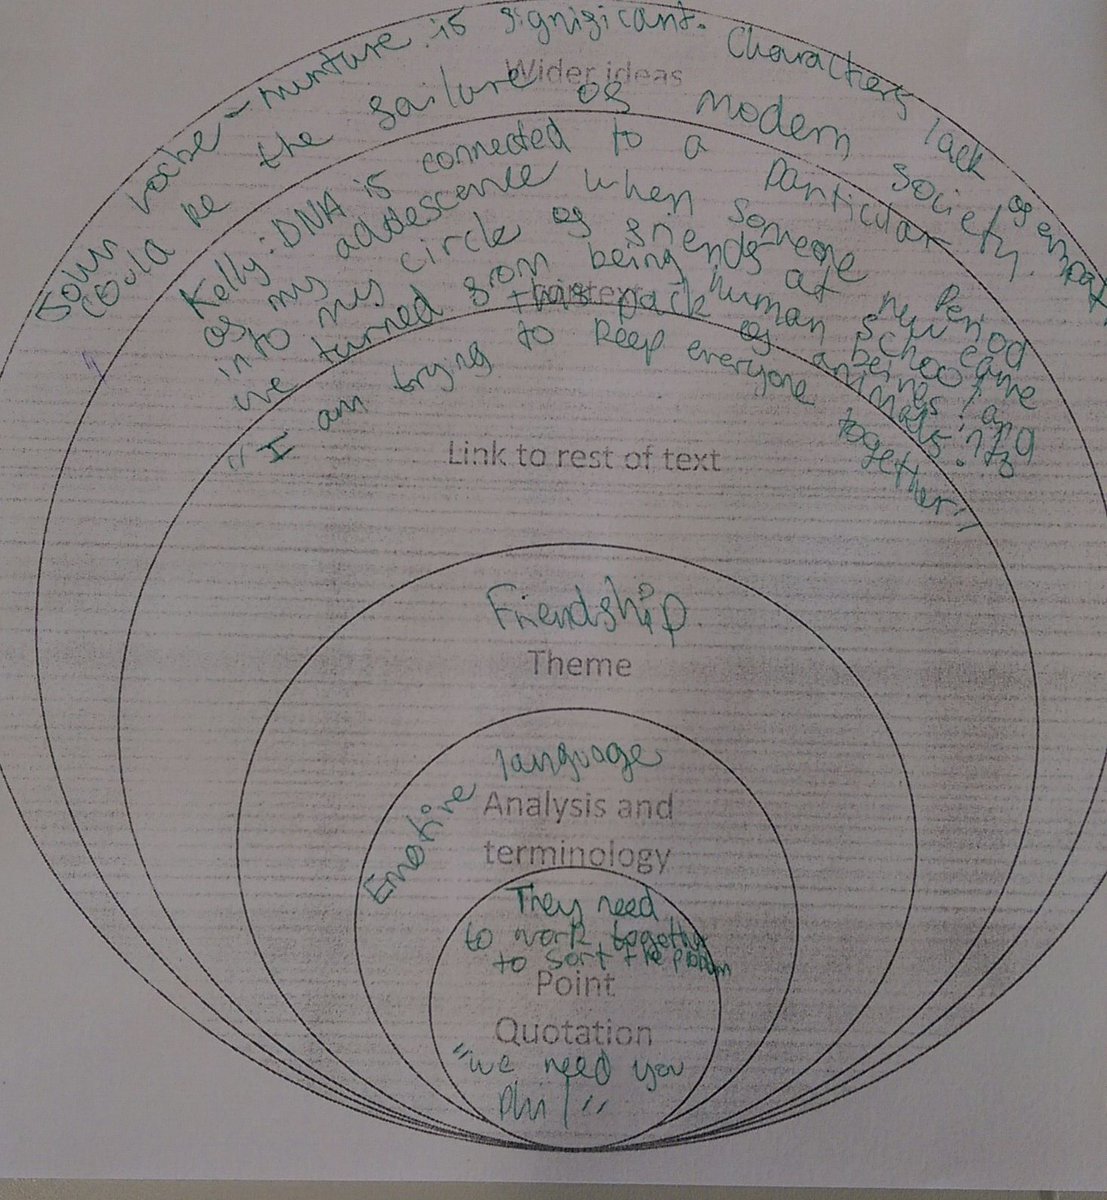 John Locke - nurture is significant. Characters lack of empat
Wider ideas
could be the failure of modern society.
Kelly: DNA is connected to a particular period
of my adolescence when someone new came
into my circle of friends at school, and
we turned from being human beings into
Context
this pack of animals.
"I am trying to keep everyone together"
Link to rest of text
Friendship
Theme
Emotive language
Analysis and
terminology
They need
to work together
to sort the problem
Point
Quotation
"we need you
Phil"